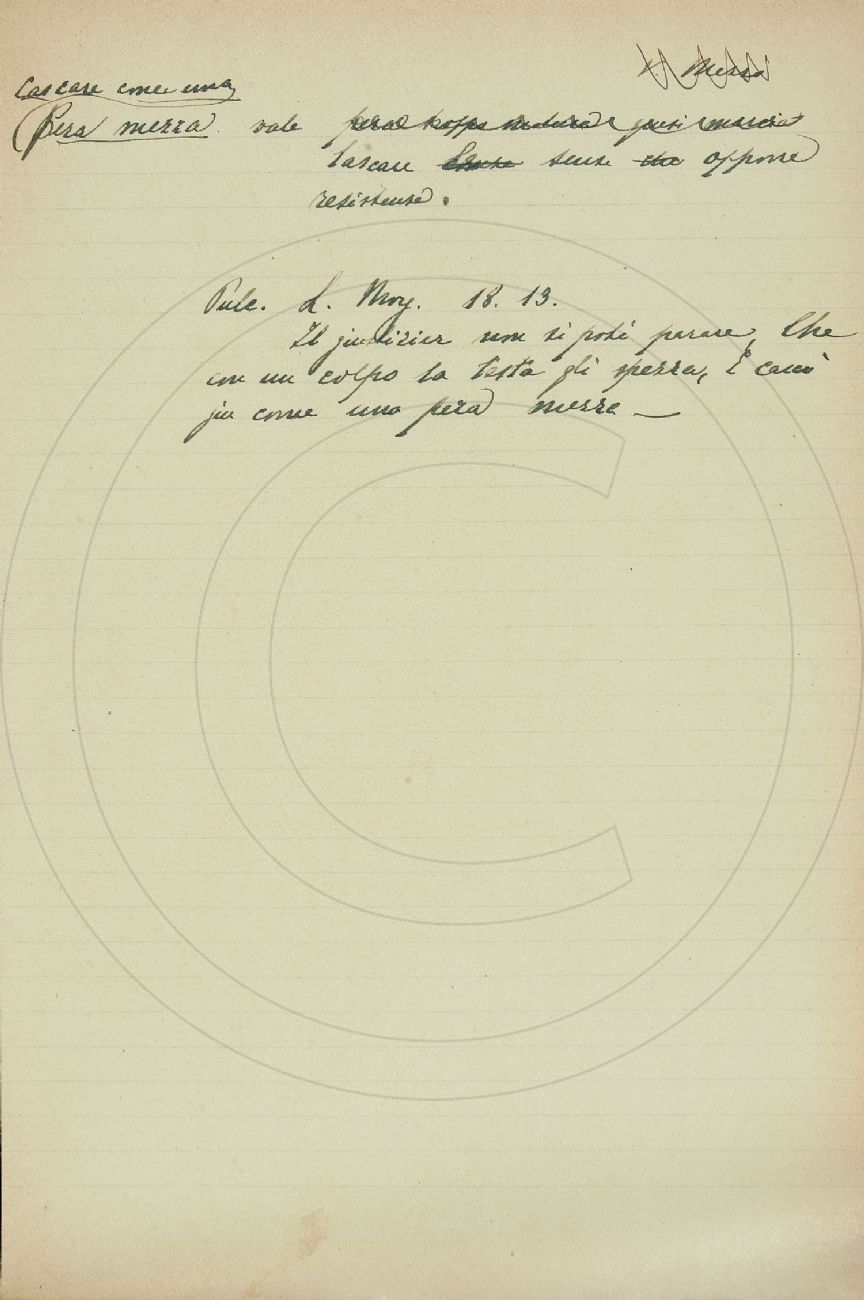 V. Mezzo
Cascare come una
Pera mezza vale pera troppo matura e quasi marcia
Cascare senza opporre
resistenza.
Pulc. L. Morg. 18. 13.
Il giustizier non si poté parare, Che
con un colpo la testa gli spezza, E cascò
giù come una pera mezza —